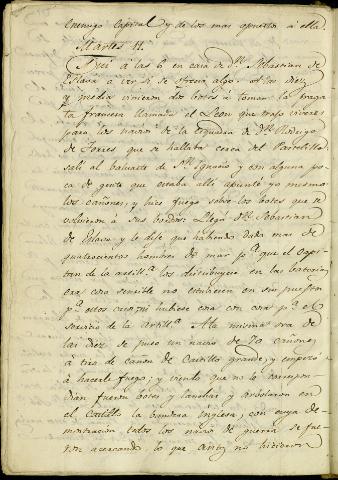 enemigo capital y de los mas opuesto á ella.
Martes 11.
Fuí á las 6 en casa de Dn. Sebastian de
Eslava a ver si se ofrecia algo. A las diez
y media vinieron dos botes á tomar la fraga
ta francesa llamada el Leon que trajo viveres
para los navios de la esquadra de Dn. Rodrigo
de Torres que se hallaba cerca del Pastelillo
salí al baluarte de Sn. Ignacio y con alguna po
ca de gente que estaba alli apunté yo mismo
los cañones, y hice fuego sobre los botes que se
volvieron á sus bordos: Llegó Dn. Sebastian
de Eslava y le dije que habiendo dado mas de
quatrocientos hombres de mar pa. que el Capi
tan de la artilla. los distribuyese en las baterias
era cosa sensible no estubiesen en sus puestos
pa. que hubiese una con otras pa. el
servicio de la Artilla. A la misma ora de
las diez se puso un navio de 70 cañones
á tiro de cañon de Castillo grande, y empezó
á hacerle fuego; y viendo que no le correspon
dian fueron botes y lanchas y arbolaron en
el Castillo la bandera Inglesa, con cuya de
mostracion todos los navios de guerra se fue
ron acercando, lo que antes no hicieron